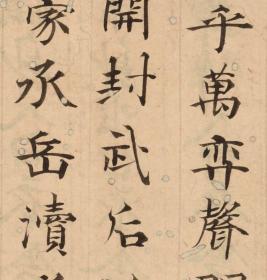 乎萬弈聲
開封武后
家承岳瀆